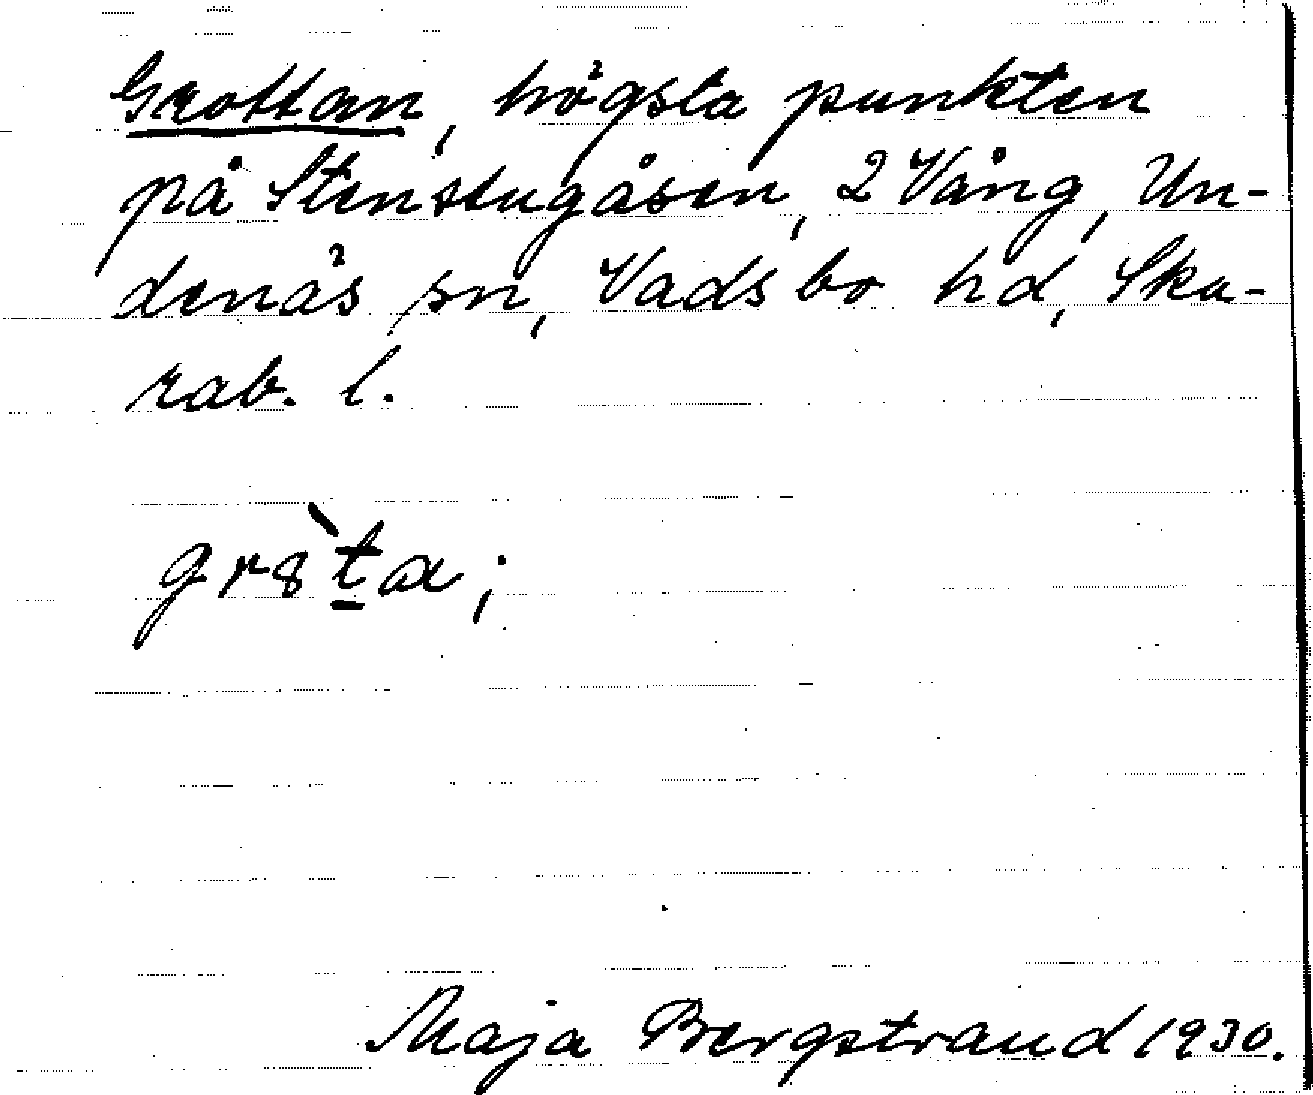 Grottan, högsta punkten
på Stenstugåsen, 2 Vång, Un-
denäs sn, Vadsbo hd, Ska-
rab. l.
gr8̀t̲a;
Maja Bergstrand 1930.